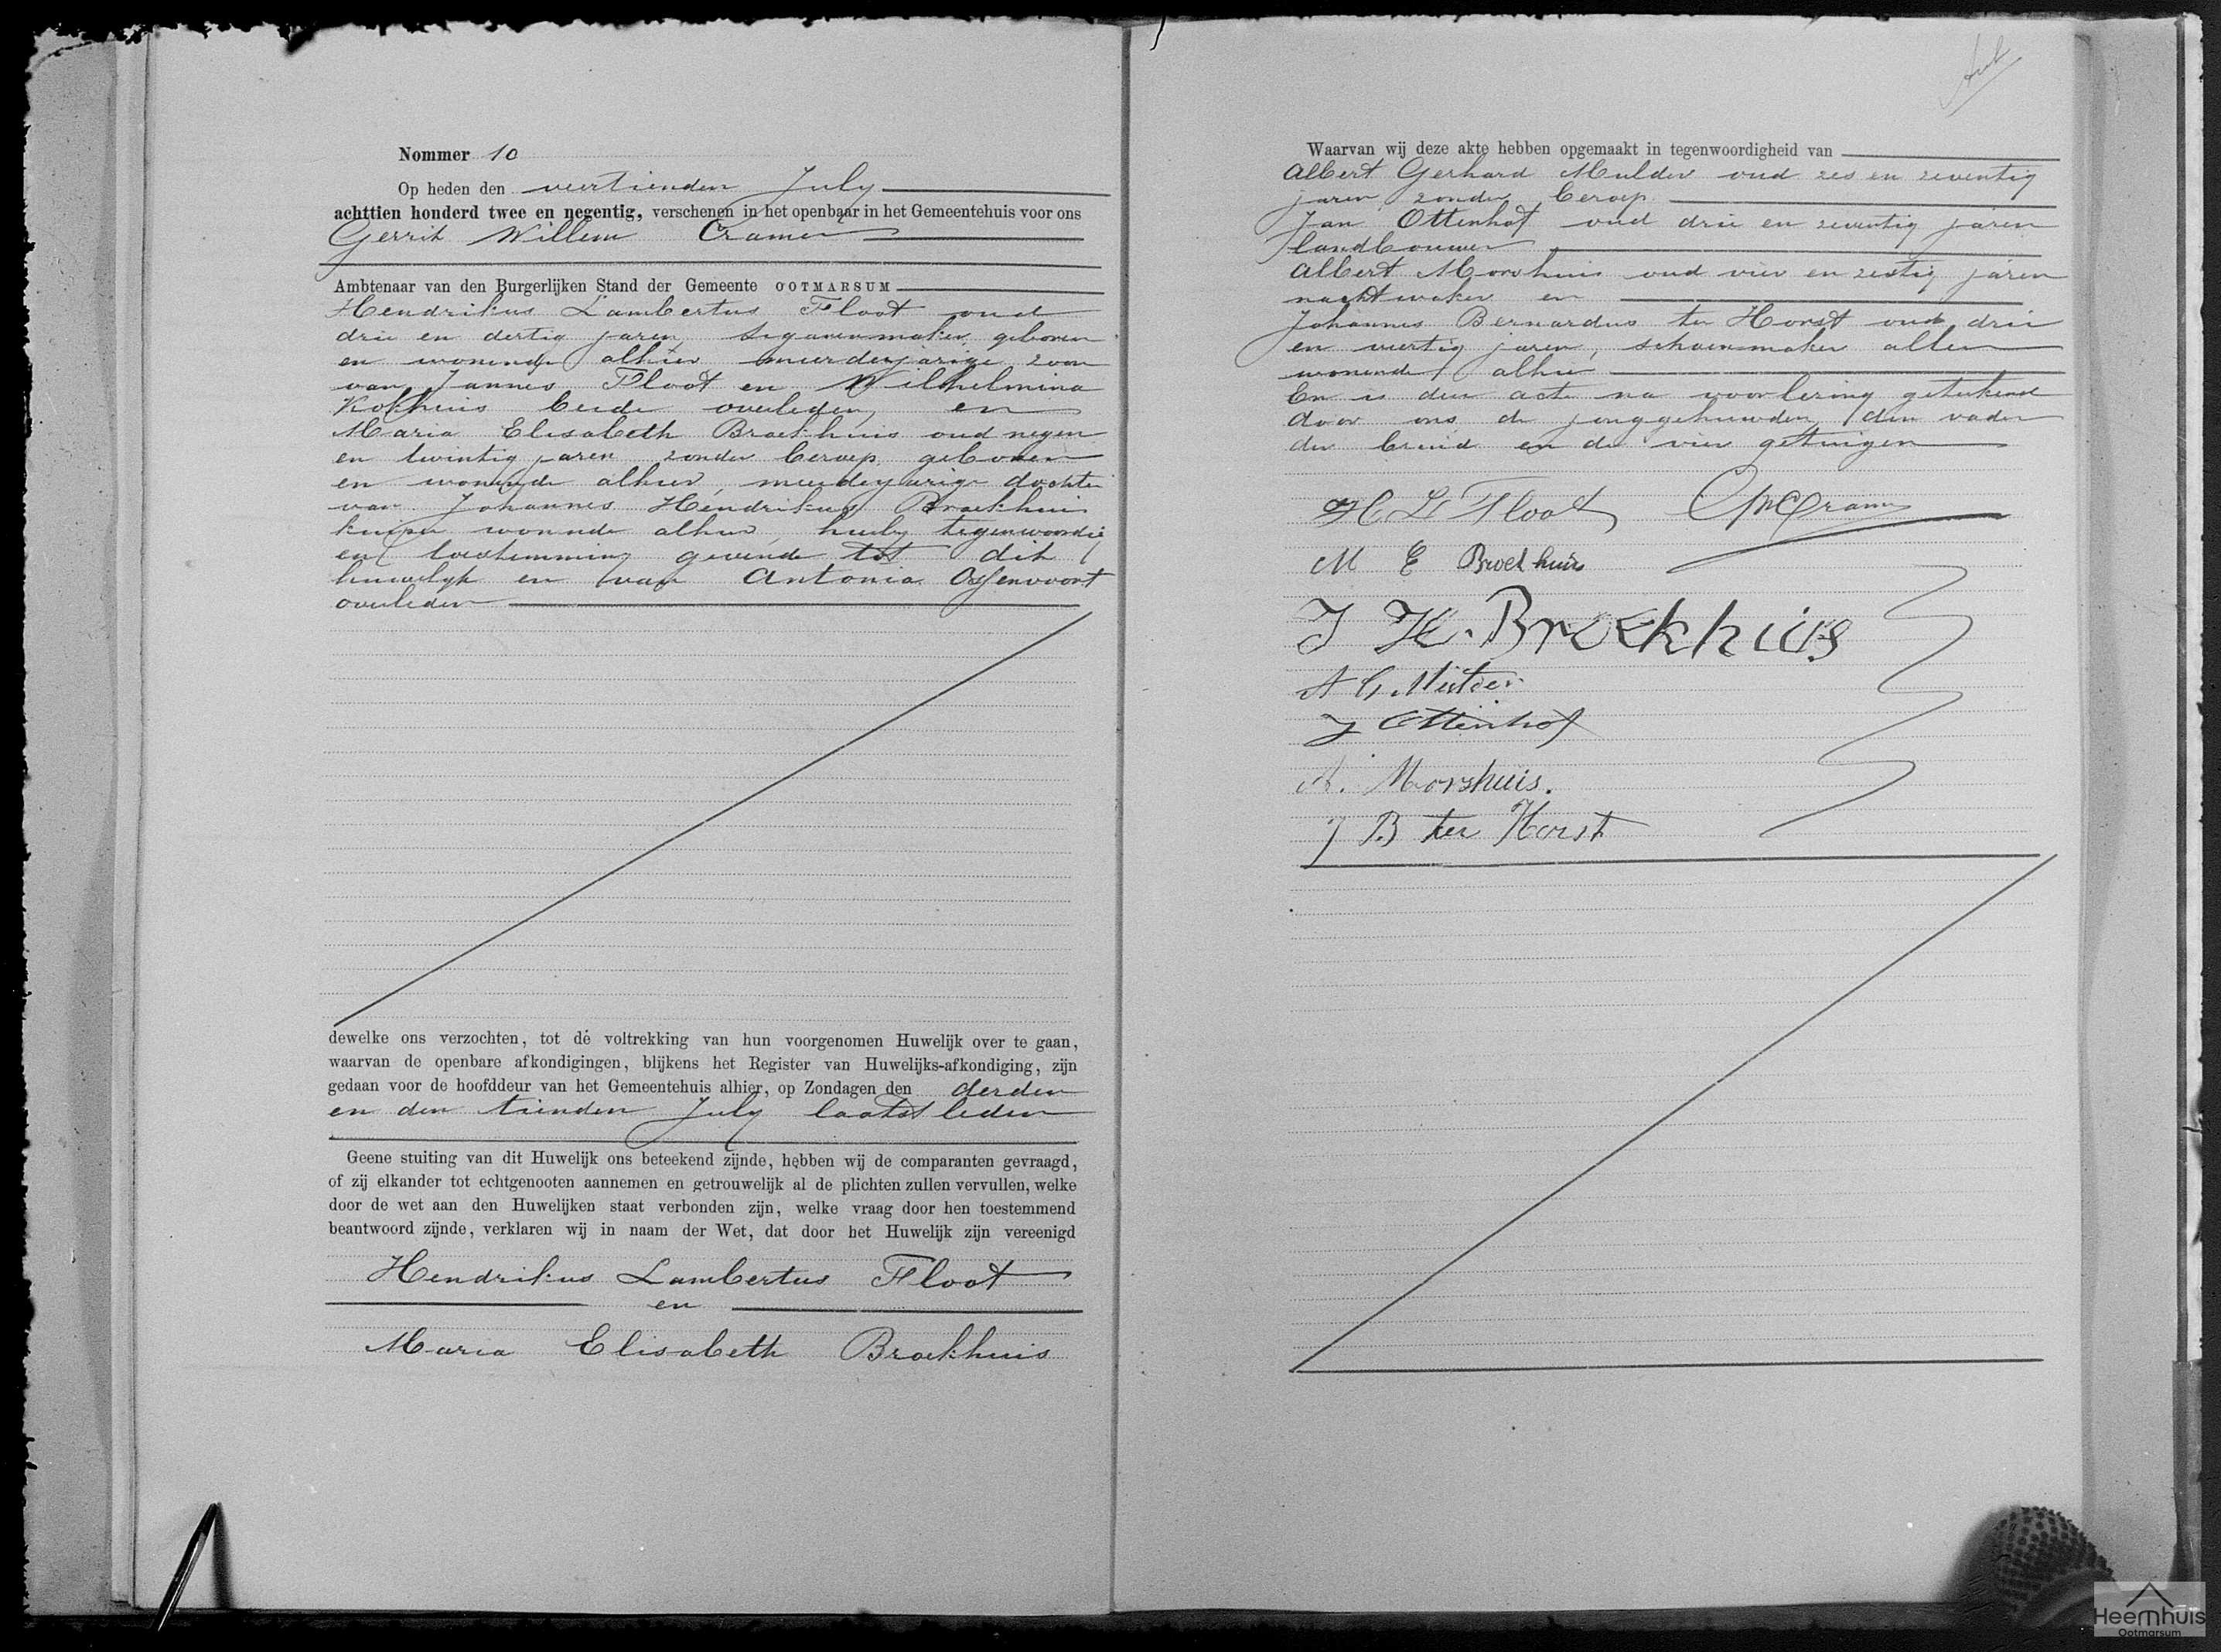 Nommer 10
Op heden den veertienden July
achttien honderd twee en negentig, verschenen in het openbaar in het Gemeentehuis voor ons
Gerrit Willem Cramer
Ambtenaar van den Burgerlijken Stand der Gemeente OOTMARSUM
Hendrikus Lambertus Floot oud
drie en dertig jaren, sigarenmaker, geboren
en wonende alhier meerderjarige zoon
van Jannes Floot en Wilhelmina
Kokhuis beide overleden, en
Maria Elisabeth Broekhuis oud negen
en twintig jaren zonder beroep, geboren
en wonende alhier, meerderjarige dochter
van Johannes Hendrikus Broekhuis
kuiper wonende alhier, hierbij tegenwoordig
en toestemming gevende tot dit
huwelijk en van Antonia Ossenvoort
overleden
dewelke ons verzochten, tot de voltrekking van hun voorgenomen Huwelijk over te gaan,
waarvan de openbare afkondigingen, blijkens het Register van Huwelijks-afkondiging, zijn
gedaan voor de hoofddeur van het Gemeentehuis alhier, op Zondagen den derden
en den tienden July laatstleden
Geene stuiting van dit Huwelijk ons beteekend zijnde, hebben wij de comparanten gevraagd,
of zij elkander tot echtgenooten aannemen en getrouwelijk al de plichten zullen vervullen, welke
door de wet aan den Huwelijken staat verbonden zijn, welke vraag door hen toestemmend
beantwoord zijnde, verklaren wij in naam der Wet, dat door het Huwelijk zijn vereenigd
Hendrikus Lambertus Floot
en
Maria Elisabeth Broekhuis
Waarvan wij deze akte hebben opgemaakt in tegenwoordigheid van
Albert Gerhard Mulder oud zes en zeventig
jaren zonder beroep
Jan Ottenhof oud drie en zeventig jaren
landbouwer
Albert Morshuis oud vier en zestig jaren
nachtwaker en
Johannes Bernardus ter Horst oud drie
en veertig jaren, schoenmaker allen
wonende alhier
En is deze acte na voorlezing geteekend
door ons de jonggehuwden, den vader
der bruid en de vier getuigen
H L Floot GWCramer
M E Broekhuis
J H. Broekhuis
A G. Mulder
J Ottenhof
A. Morshuis.
J B ter Horst
Heemhuis
Ootmarsum